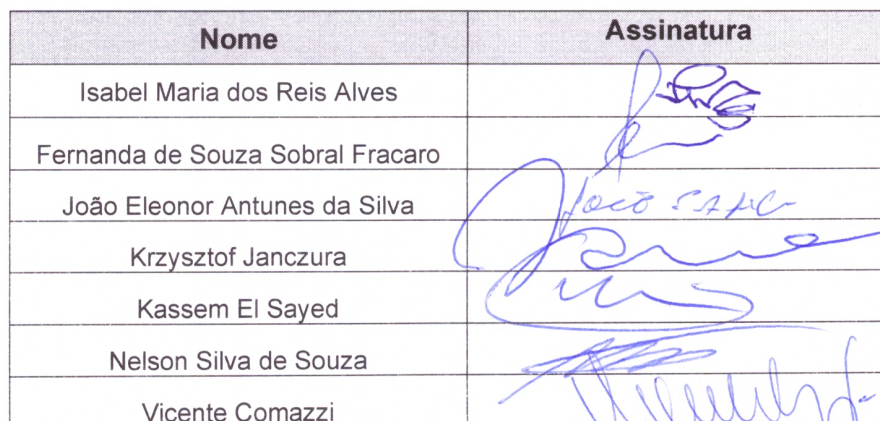 Nome Assinatura
Isabel Maria dos Reis Alves
Fernanda de Souza Sobral Fracaro
João Eleonor Antunes da Silva João
Krzysztof Janczura
Kassem El Sayed
Nelson Silva de Souza
Vicente Comazzi